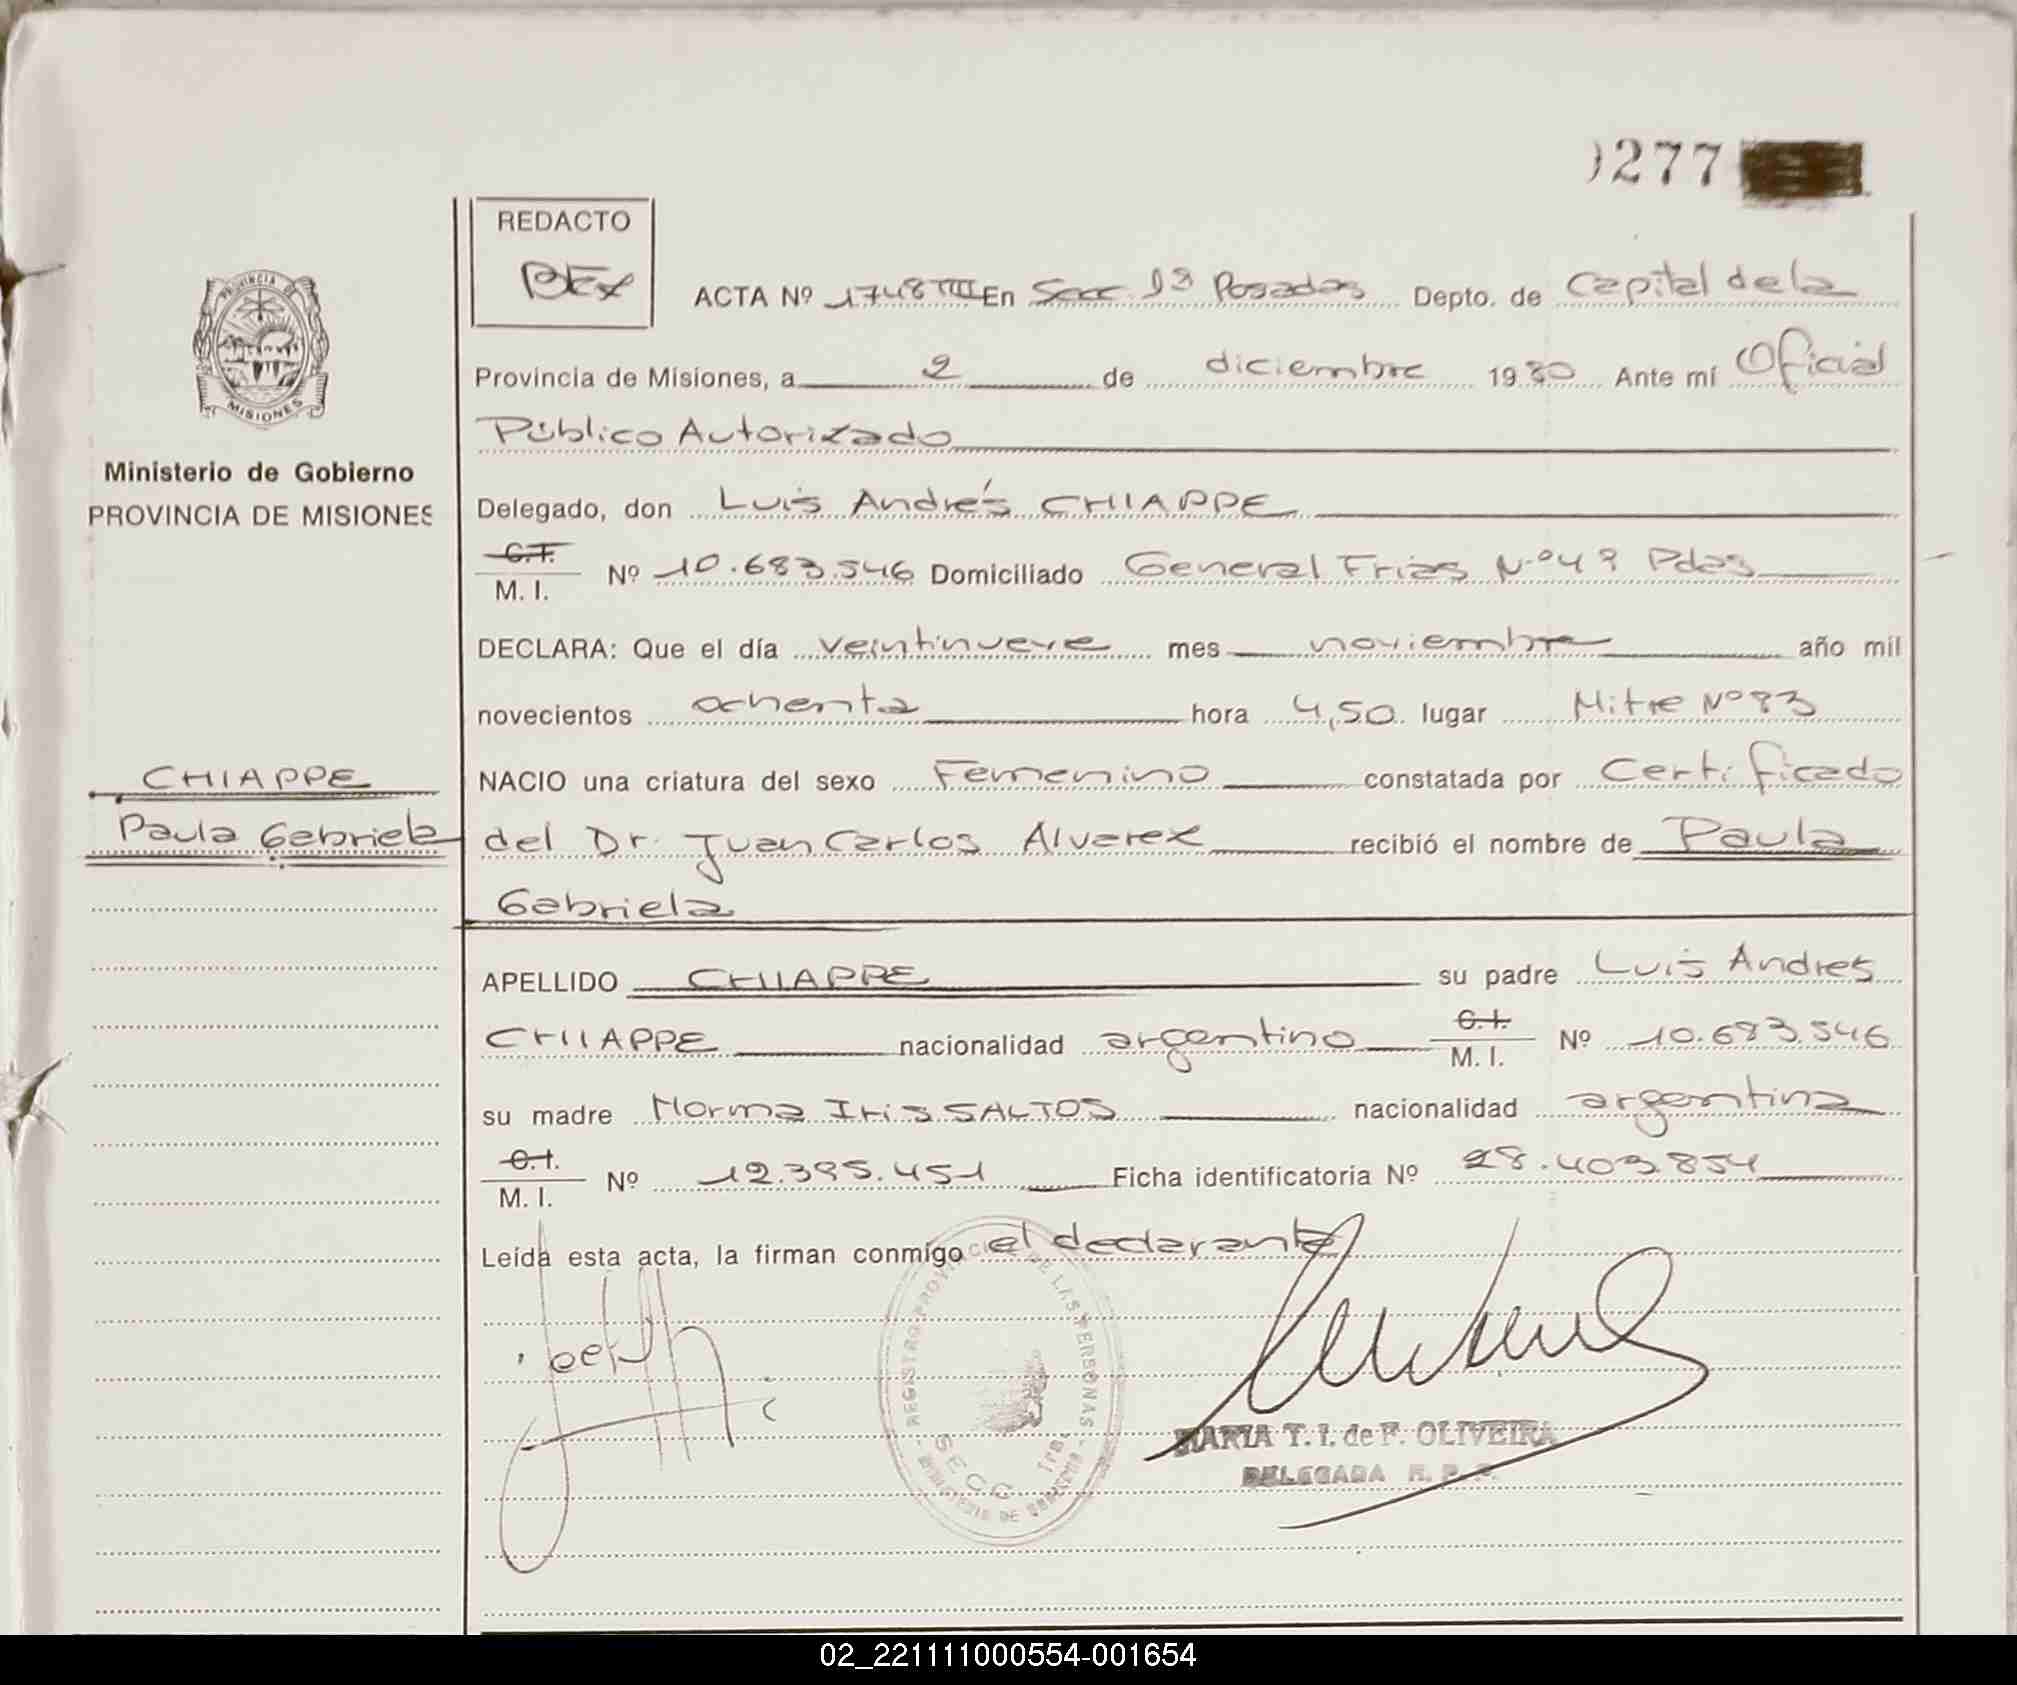 0277
REDACTO
ACTA Nº 1748 TIII En Secc. 1ª Posadas Depto. de Capital de la
Provincia de Misiones, a 2 de diciembre 1980 Ante mí Oficial
Público Autorizado
PROVINCIA DE
MISIONES
Ministerio de Gobierno
PROVINCIA DE MISIONES
Delegado, don Luis Andrés CHIAPPE
C.I.
M. I. Nº 10.683.546 Domiciliado General Frias Nº 49 Pdas
DECLARA: Que el día veintinueve mes noviembre año mil
novecientos ochenta hora 4,50 lugar Mitre Nº 83
CHIAPPE
Paula Gabriela
NACIO una criatura del sexo Femenino constatada por Certificado
del Dr. Juan Carlos Alvarez recibió el nombre de Paula
Gabriela
APELLIDO CHIAPPE su padre Luis Andres
CHIAPPE nacionalidad argentino C.I. M. I. Nº 10.683.546
su madre Norma Iris SALTOS nacionalidad argentina
C.I.
M. I. Nº 12.395.451 Ficha identificatoria Nº 28.403.854
Leída esta acta, la firman conmigo el declarante
REGISTRO PROVINCIAL DE LAS PERSONAS
MINISTERIO DE GOBIERNO
SECC. 1ra.
MARIA T. I. de F. OLIVEIRA
DELEGADA R. P. P.
02_221111000554-001654